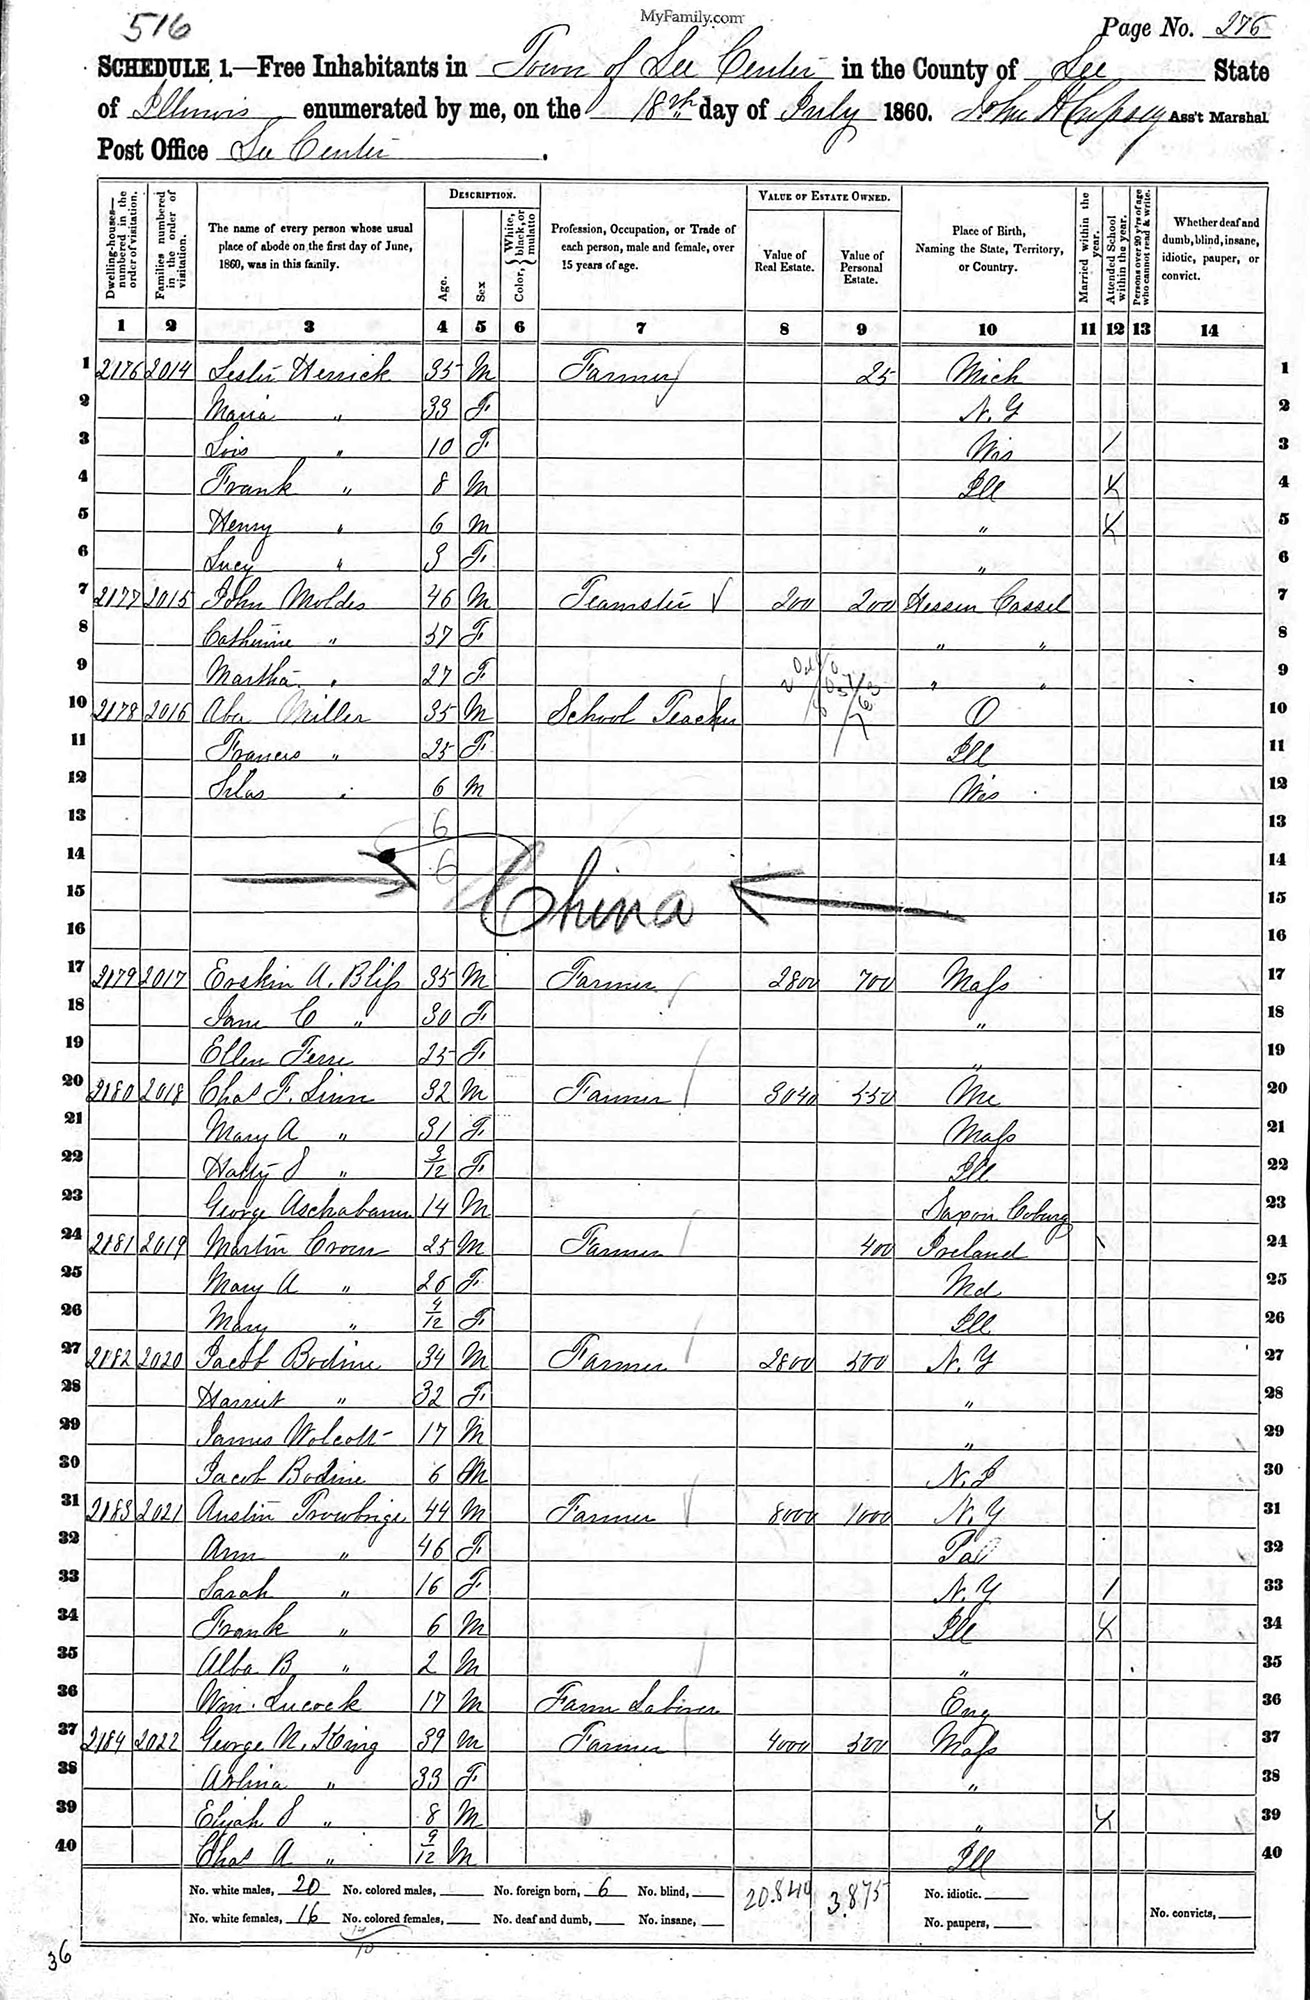 MyFamily.com
516
Page No. 276
SCHEDULE 1.—Free Inhabitants in Town of Lee Center in the County of Lee State
of Illinois enumerated by me, on the 18th day of July 1860. John H Ass't Marshal
Post Office Lee Center.
Dwelling-houses—numbered in the order of visitation. Families numbered in the order of visitation. The name of every person whose usual place of abode on the first day of June, 1860, was in this family. DESCRIPTION. Age. Sex Color, { White, black, or mulatto Profession, Occupation, or Trade of each person, male and female, over 15 years of age. VALUE OF ESTATE OWNED. Value of Real Estate. Value of Personal Estate. Place of Birth, Naming the State, Territory, or Country. Married within the year. Attended School within the year. Persons over 20 y'rs of age who cannot read & write. Whether deaf and dumb, blind, insane, idiotic, pauper, or convict.
1 2 3 4 5 6 7 8 9 10 11 12 13 14
1 2176 2014 Lester Herrick 35 M Farmer 25 Mich 1
2 Maria " 33 F N. Y 2
3 Lois " 10 F Wis / 3
4 Frank " 8 M Ill X 4
5 Henry " 6 M " X 5
6 Lucy " 3 F " 6
7 2177 2015 John Moldes 46 M Teamster 200 200 Hessen Cassel 7
8 Catherine " 37 F " " 8
9 Martha " 27 F " " 9
10 2178 2016 Abr Miller 35 M School Teacher O 10
11 Frances " 25 F Ill 11
12 Silas " 6 M Wis 12
13 6 13
14 6 14
15 China 15
16 16
17 2179 2017 Erskin A. Bliss 35 M Farmer 2800 700 Mass 17
18 Jane C " 30 F " 18
19 Ellen Ferre 25 F " 19
20 2180 2018 Chas F. Linn 32 M Farmer 3040 550 Me 20
21 Mary A " 31 F Mass 21
22 Hatty S " 3/12 F Ill 22
23 George Aschabann 14 M Saxon Coburg 23
24 2181 2019 Martin Crom 25 M Farmer 400 Ireland 24
25 Mary A " 26 F Md 25
26 Mary " 4/12 F Ill 26
27 2182 2020 Jacob Bodine 34 M Farmer 2800 500 N. Y 27
28 Harriet " 32 F " 28
29 James Wolcott 17 M " 29
30 Jacob Bodine 6 M N. J 30
31 2183 2021 Austin Trowbrige 44 M Farmer 8000 1000 N. Y 31
32 Ann " 46 F Pa 32
33 Sarah " 16 F N. Y / 33
34 Frank " 6 M Ill X 34
35 Alba B " 2 M " 35
36 Wm. Lucock 17 M Farm Laborer Eng 36
37 2184 2022 George N. King 39 M Farmer 4000 500 Mass 37
38 Arlina " 33 F " 38
39 Elijah S " 8 M " X 39
40 Chas A " 9/12 M Ill 40
No. white males, 20 No. colored males, No. foreign born, 6 No. blind, 20.840 3.875 No. idiotic. No. convicts,
No. white females, 16 No. colored females, No. deaf and dumb, No. insane, No. paupers,
36